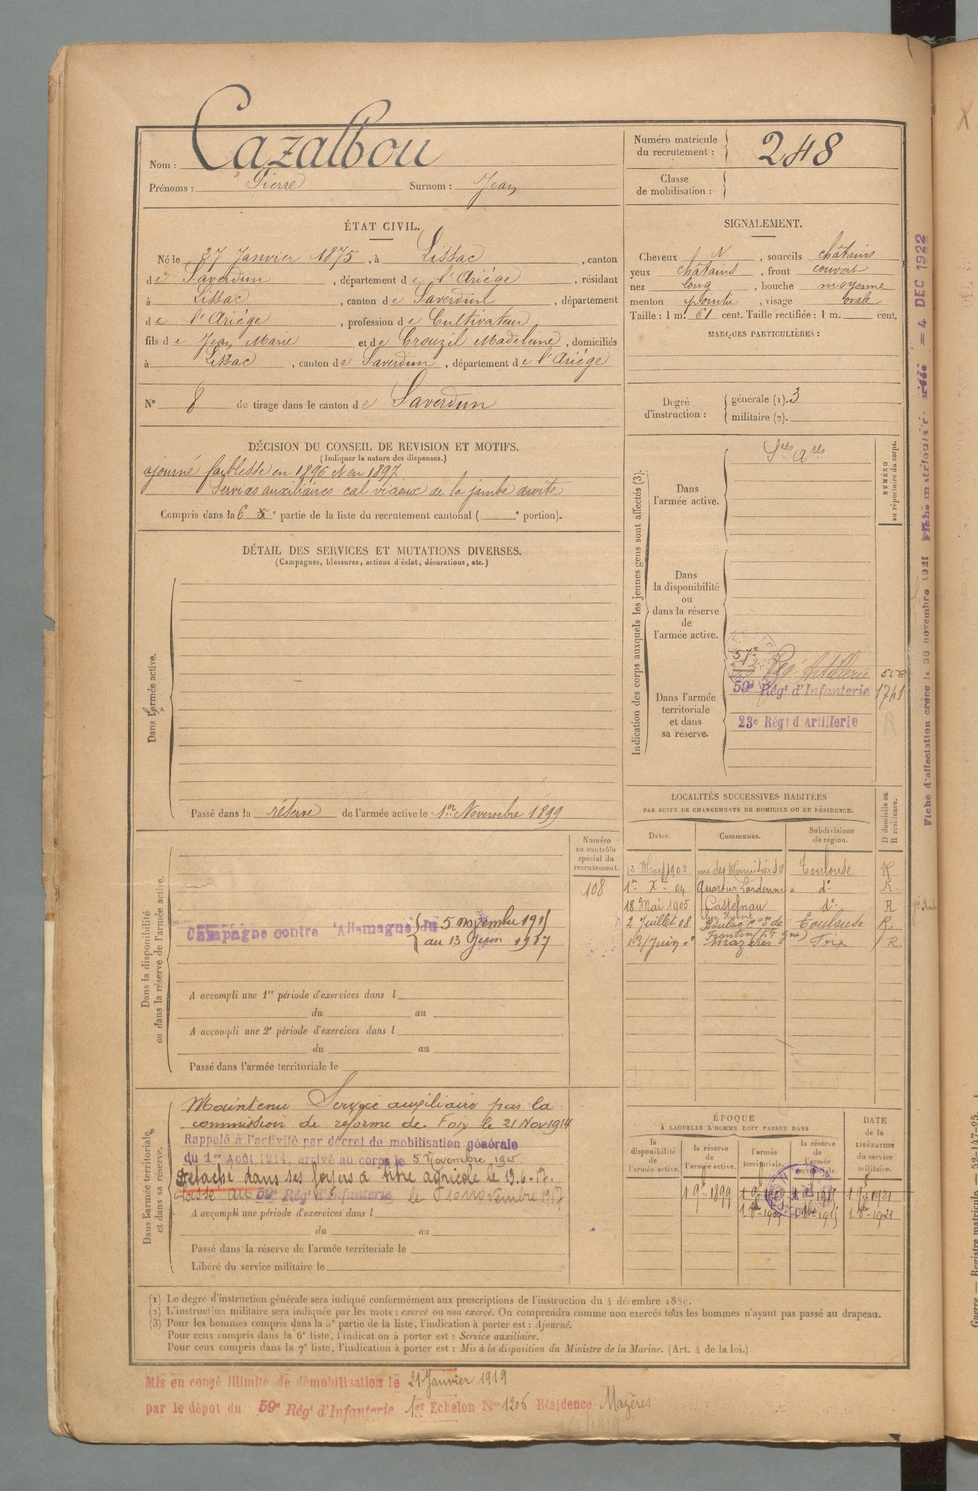 Nom : Cazalbou
Prénoms : Pierre Surnom : Jean
Numéro matricule du recrutement : 248
Classe de mobilisation :
ÉTAT CIVIL.
Né le 27 Janvier 1875, à Lissac, canton
de Saverdun, département de l'Ariége, résidant
à Lissac, canton de Saverdun, département
de l'Ariége, profession de Cultivateur
fils de Jean Marie et de Crouzil Madeleine, domiciliés
à Lissac, canton de Saverdun, département de l'Ariége
N° 8 de tirage dans le canton de Saverdun
SIGNALEMENT.
Cheveux N, sourcils châtains
yeux châtains, front couvert
nez long, bouche moyenne
menton pointu, visage ovale
Taille : 1 m. 61 cent. Taille rectifiée : 1 m. cent.
MARQUES PARTICULIÈRES :
Degré d'instruction : générale (1). 3
militaire (2).
DÉCISION DU CONSEIL DE REVISION ET MOTIFS.
(Indiquer la nature des dispenses.)
ajourné faiblesse en 1896 et en 1897
Services auxiliaires cal vicieux de la jambe droite
Compris dans la 6e partie de la liste du recrutement cantonal ( e portion).
DÉTAIL DES SERVICES ET MUTATIONS DIVERSES.
(Campagnes, blessures, actions d'éclat, décorations, etc.)
Dans l'armée active.
Passé dans la réserve de l'armée active le 1er Novembre 1899
Indication des corps auxquels les jeunes gens sont affectés (3).
NUMÉRO au répertoire du corps.
Dans l'armée active.
Dans la disponibilité ou dans la réserve de l'armée active.
Dans l'armée territoriale et dans sa réserve.
57e
Rég. Artillerie
59e Régt d'Infanterie 1741
23e Régt d'Artillerie
Fiche d'affectation créée le 30 novembre 1921
4 DEC 1922
LOCALITÉS SUCCESSIVES HABITÉES
PAR SUITE DE CHANGEMENTS DE DOMICILE OU DE RÉSIDENCE.
Dates. Communes. Subdivisions de région. D domicile ou R résidence.
12 Mars 1902 Toulouse R
1er Xbre 04 do R
18 Mai 1905 Castelnau do R
2 Juillet 08 Toulouse R
13 Juin Mazères Foix R
Dans la disponibilité ou dans la réserve de l'armée active.
Numéro au contrôle spécial du recrutement.
108
Campagne contre l'Allemagne du 5 novembre 1915
au 13 Juin 1917
A accompli une 1re période d'exercices dans l
du au
A accompli une 2e période d'exercices dans l
du au
Passé dans l'armée territoriale le
Dans l'armée territoriale et dans sa réserve.
Maintenu Service auxiliaire par la
commission de réforme de Foix le 21 Nov 1914
Rappelé à l'activité par décret de mobilisation générale
du 1er Août 1914, arrivé au corps le 5 Novembre 1915
Détaché dans ses foyers à titre agricole le 13.6.17.
Passé au 59e Régt d'Infanterie le 10 novembre 1917
A accompli une période d'exercices dans l
du au
Passé dans la réserve de l'armée territoriale le
Libéré du service militaire le
ÉPOQUE
À LAQUELLE L'HOMME DOIT PASSER DANS
DATE de la LIBÉRATION du service militaire.
la disponibilité de l'armée active. la réserve de l'armée active. l'armée territoriale. la réserve de l'armée territoriale.
(1) Le degré d'instruction générale sera indiqué conformément aux prescriptions de l'instruction du 4 décembre 1889.
(2) L'instruction militaire sera indiquée par les mots : exercé ou non exercé. On comprendra comme non exercés tous les hommes n'ayant pas passé au drapeau.
(3) Pour les hommes compris dans la 5e partie de la liste, l'indication à porter est : Ajourné.
Pour ceux compris dans la 6e liste, l'indication à porter est : Service auxiliaire.
Pour ceux compris dans la 7e liste, l'indication à porter est : Mis à la disposition du Ministre de la Marine. (Art. 4 de la loi.)
Mis en congé illimité de démobilisation le 21 Janvier 1919
par le dépôt du 59e Régt d'Infanterie 1er Echelon N° 1206 Résidence Mazères